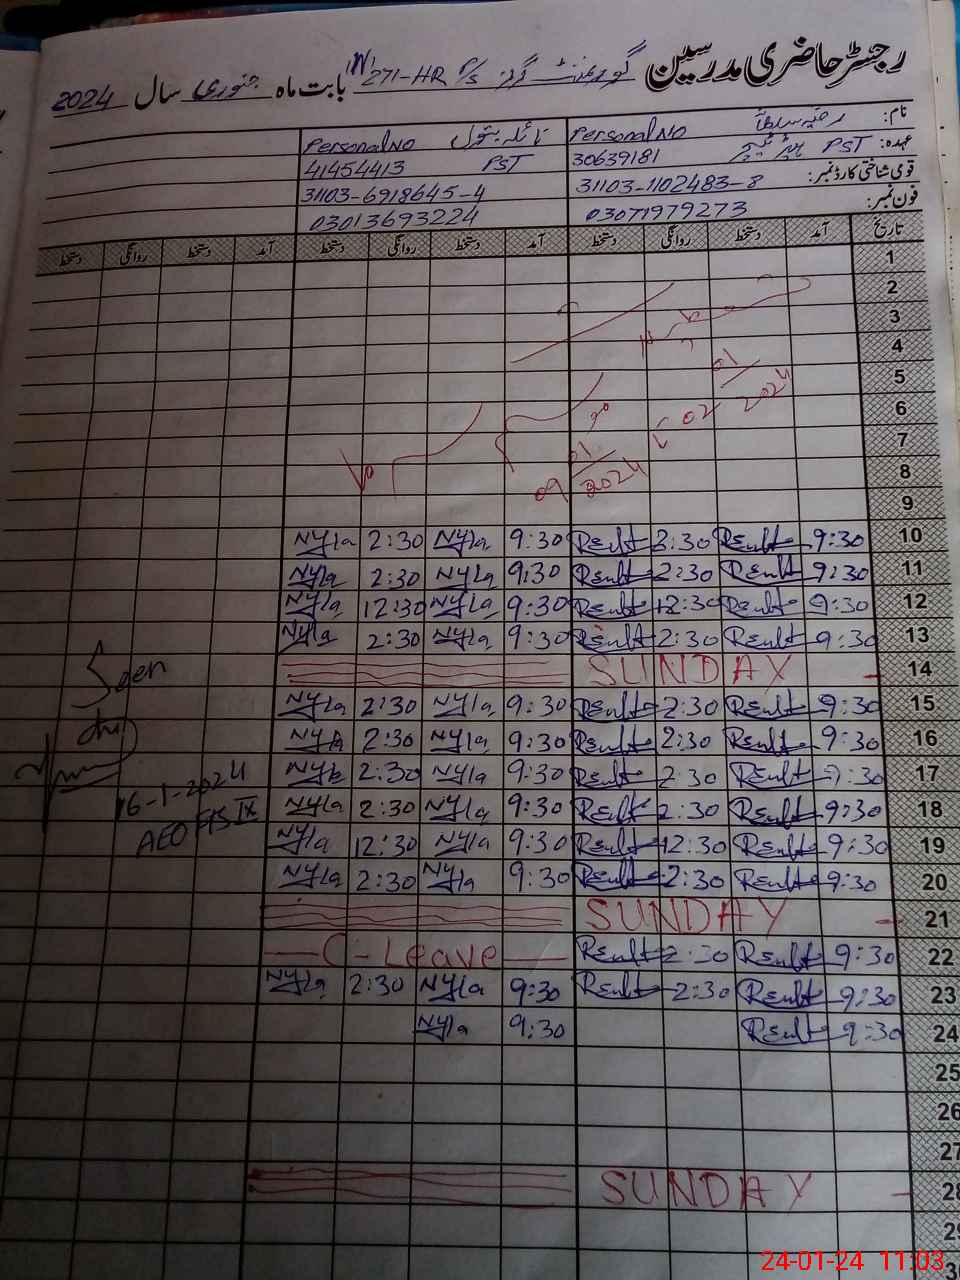 رجسٹر حاضری مدرسین گورنمنٹ گرلز P/S 271-HR بابت ماہ جنوری سال 2024
نام: رضیہ سلطانہ Personal NO نائلہ بتول Personal NO
عہدہ: PST ہیڈ ٹیچر 30639181 PST 41454413
قومی شناختی کارڈ نمبر: 31103-1102483-8 31103-6918645-4
فون نمبر: 03071979273 03013693224
تاریخ آمد دستخط روانگی دستخط آمد دستخط روانگی دستخط آمد دستخط روانگی دستخط
1
2
3
4
5 01
6 02 2024
7
8 01
9 09 2024
10 9:30 2:30 9:30 Nyla 2:30 Nyla
11 9:30 2:30 9:30 Nyla 2:30 Nyla
12 9:30 12:30 9:30 Nyla 12:30 Nyla
13 9:30 2:30 9:30 Nyla 2:30 Nyla
14 SUNDAY
15 9:30 2:30 9:30 Nyla 2:30 Nyla
16 9:30 2:30 9:30 Nyla 2:30 Nyla
17 9:30 2:30 9:30 Nyla 2:30 Nyla
18 9:30 2:30 9:30 Nyla 2:30 Nyla
19 9:30 12:30 9:30 Nyla 12:30 Nyla
20 9:30 2:30 9:30 Nyla 2:30 Nyla
21 SUNDAY
22 9:30 2:30 C-Leave
23 9:30 2:30 9:30 Nyla 2:30 Nyla
24 9:30 9:30 Nyla
25
26
27
28 SUNDAY
29
Seen
16-1-2024
AEO
24-01-24 11:03